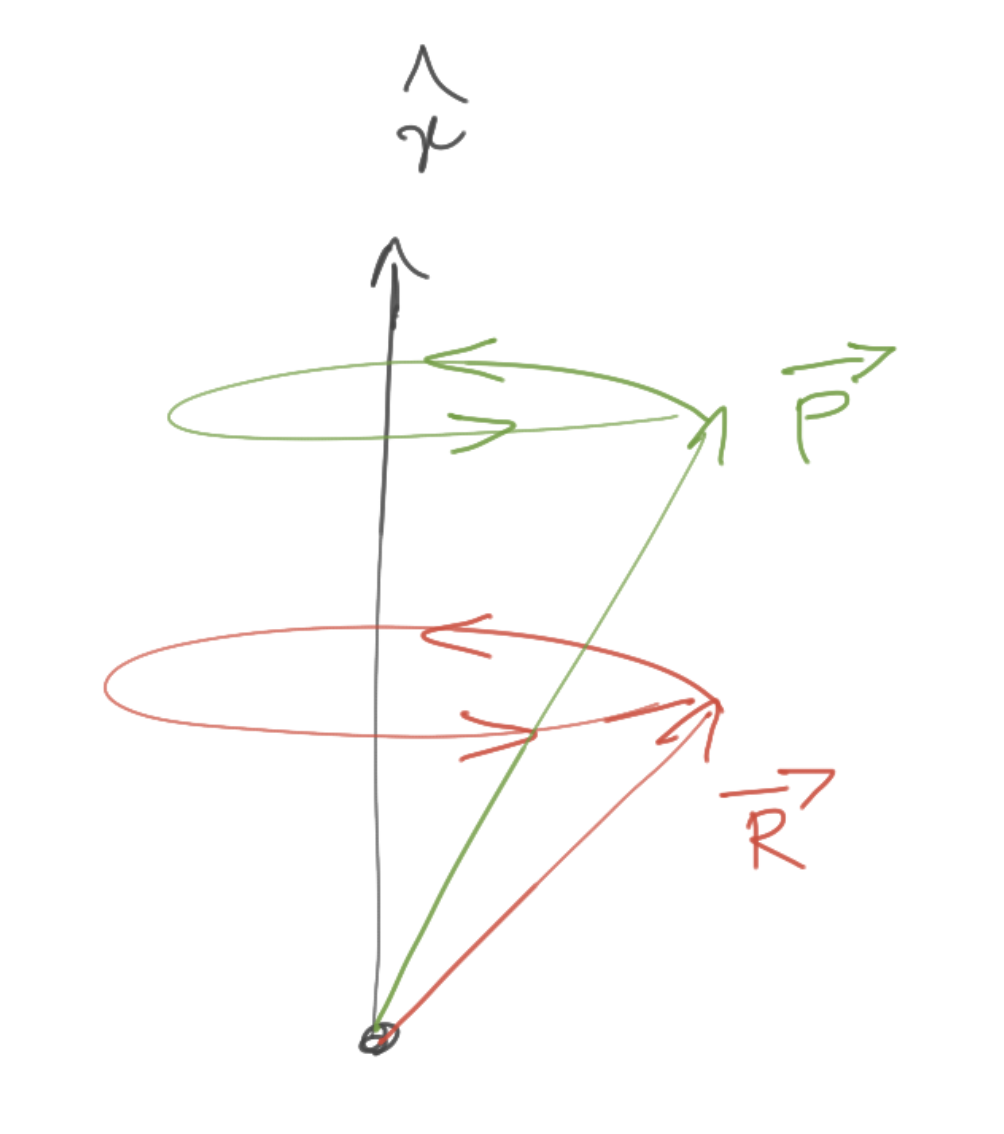 x̂
P⃗
R⃗